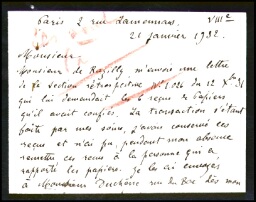 Paris 2 rue VIIIe
21 janvier 1932.
Monsieur
Monsieur de m'envoie une lettre
de la section rétrospective No 1026 du 12 Xbre 31
qui lui demandait les 2 reçus de papiers
qu'il avait confiés. La transaction s'étant
faite par mes soins, j'avais conservé ces
reçus et n'ai pu, pendant mon absence
remettre ces reçus à la personne qui a
rapporté les papiers. Je les ai envoyés
à Monsieur rue du Bac dès mon